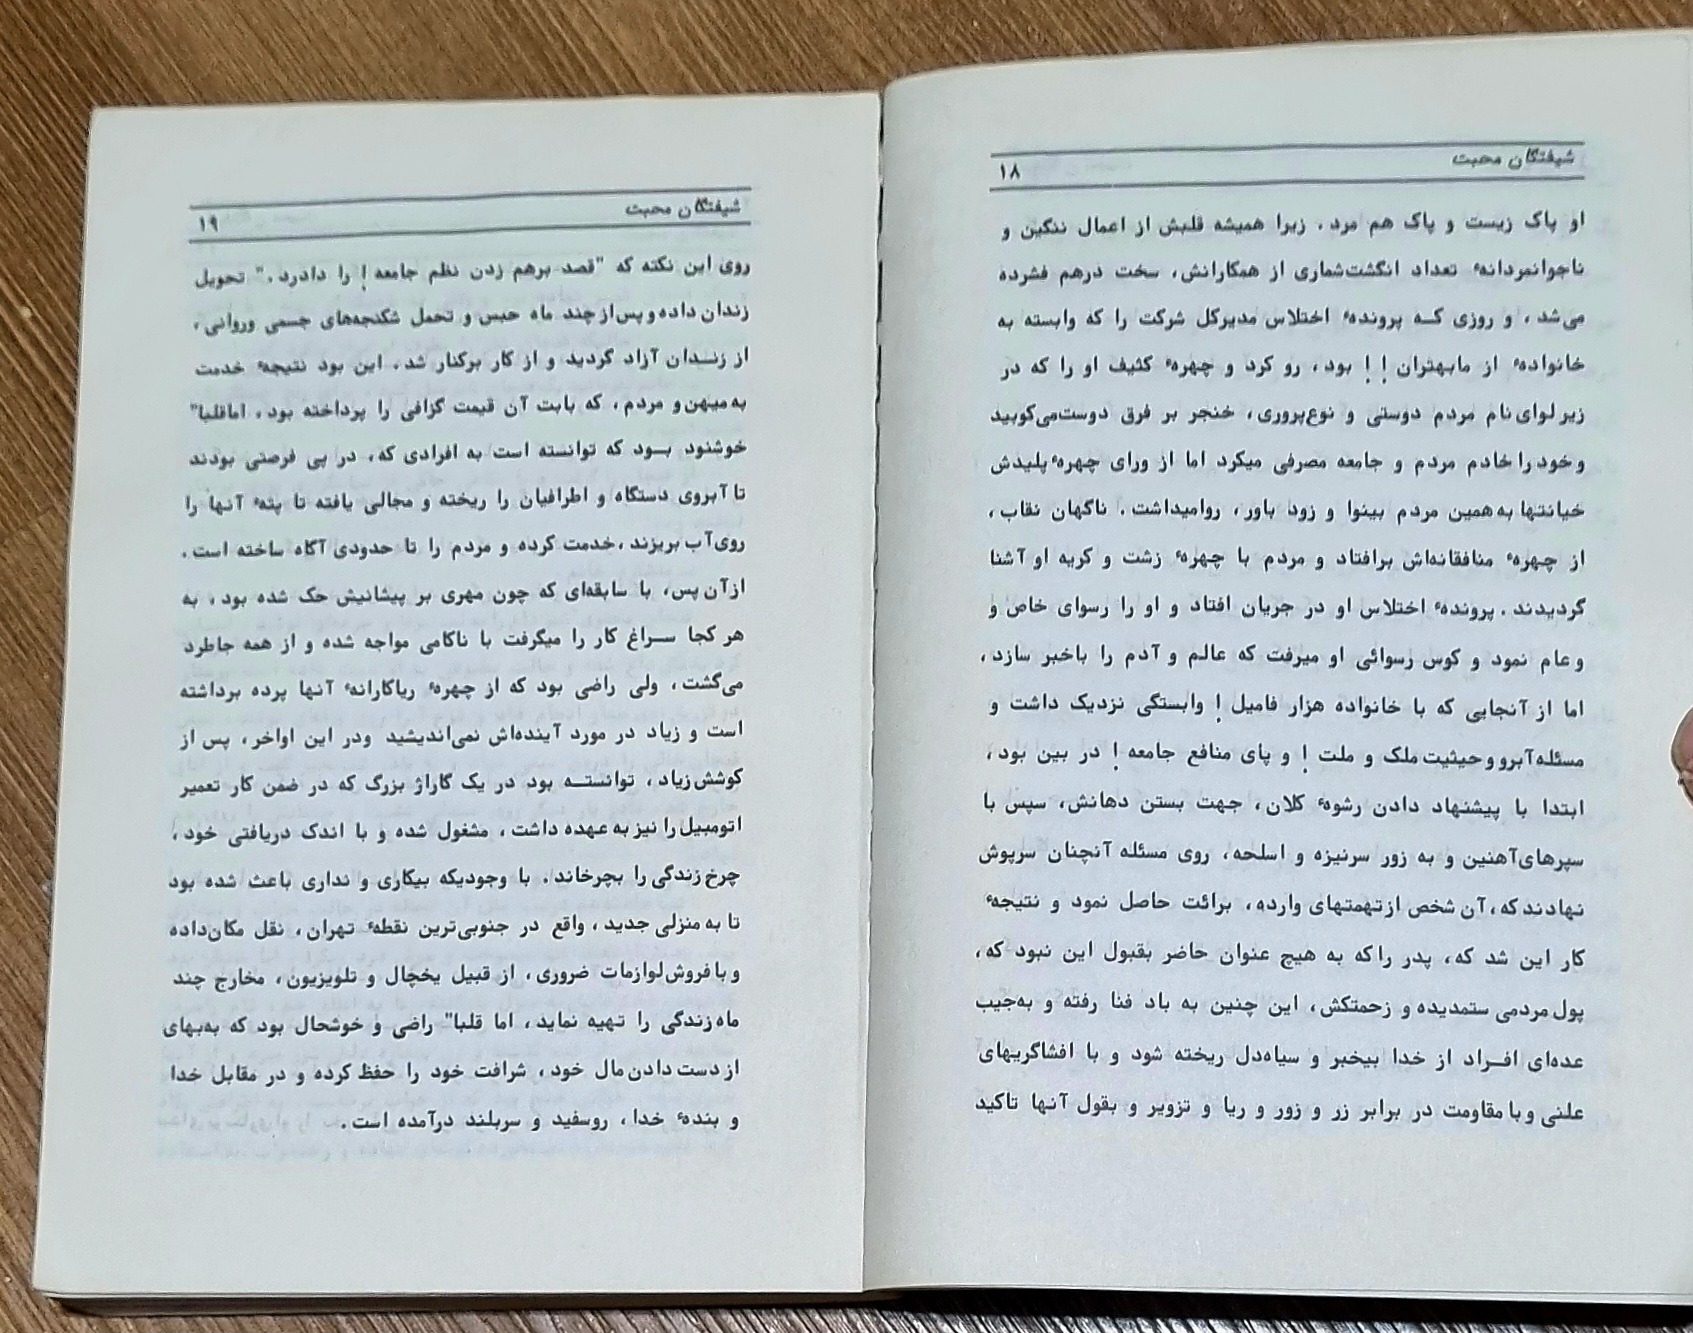 شیفتگان محبت ۱۸
او پاک زیست و پاک هم مرد. زیرا همیشه قلبش از اعمال ننگین و
ناجوانمردانهٔ تعداد انگشت‌شماری از همکارانش، سخت درهم فشرده
می‌شد، و روزی که پروندهٔ اختلاس مدیرکل شرکت را که وابسته به
خانوادهٔ از مابهتران !! بود، رو کرد و چهرهٔ کثیف او را که در
زیر لوای نام مردم دوستی و نوع‌پروری، خنجر بر فرق دوست‌می‌کوبید
و خود را خادم مردم و جامعه مصرفی میکرد اما از ورای چهرهٔ پلیدش
خیانتها به همین مردم بینوا و زود باور، روامیداشت. ناگهان نقاب،
از چهرهٔ منافقانه‌اش برافتاد و مردم با چهرهٔ زشت و کریه او آشنا
گردیدند. پروندهٔ اختلاس او در جریان افتاد و او را رسوای خاص و
و عام نمود و کوس رسوائی او میرفت که عالم و آدم را باخبر سازد،
اما از آنجایی که با خانواده هزار فامیل ! وابستگی نزدیک داشت و
مسئله آبرو و حیثیت ملک و ملت ! و پای منافع جامعه ! در بین بود،
ابتدا با پیشنهاد دادن رشوهٔ کلان، جهت بستن دهانش، سپس با
سپرهای آهنین و به زور سرنیزه و اسلحه، روی مسئله آنچنان سرپوش
نهادند که، آن شخص از تهمتهای وارده، برائت حاصل نمود و نتیجهٔ
کار این شد که، پدر را که به هیچ عنوان حاضر بقبول این نبود که،
پول مردمی ستمدیده و زحمتکش، این چنین به باد فنا رفته و به‌جیب
عده‌ای افراد از خدا بیخبر و سیاه‌دل ریخته شود و با افشاگریهای
علنی و با مقاومت در برابر زر و زور و ریا و تزویر و بقول آنها تاکید
شیفتگان محبت ۱۹
روی این نکته که "قصد برهم زدن نظم جامعه ! را دادرد." تحویل
زندان داده و پس از چند ماه حبس و تحمل شکنجه‌های جسمی وروانی،
از زندان آزاد گردید و از کار برکنار شد. این بود نتیجهٔ خدمت
به میهن و مردم، که بابت آن قیمت گزافی را پرداخته بود. اماقلبا"
خوشنود بود که توانسته است به افرادی که، در پی فرصتی بودند
تا آبروی دستگاه و اطرافیان را ریخته و مجالی یافته تا پتهٔ آنها را
روی آب بریزند، خدمت کرده و مردم را تا حدودی آگاه ساخته است.
ازآن پس، با سابقه‌ای که چون مهری بر پیشانیش حک شده بود، به
هر کجا سراغ کار را میگرفت با ناکامی مواجه شده و از همه جاطرد
می‌گشت، ولی راضی بود که از چهرهٔ ریاکارانهٔ آنها پرده برداشته
است و زیاد در مورد آینده‌اش نمی‌اندیشید ودر این اواخر، پس از
کوشش زیاد، توانسته بود در یک گاراژ بزرگ که در ضمن کار تعمیر
اتومبیل را نیز به عهده داشت، مشغول شده و با اندک دریافتی خود،
چرخ زندگی را بچرخاند. با وجودیکه بیکاری و نداری باعث شده بود
تا به منزلی جدید، واقع در جنوبی‌ترین نقطهٔ تهران، نقل مکان‌داده
و با فروش لوازمات ضروری، از قبیل یخچال و تلویزیون، مخارج چند
ماه زندگی را تهیه نماید، اما قلبا" راضی و خوشحال بود که به‌بهای
از دست دادن مال خود، شرافت خود را حفظ کرده و در مقابل خدا
و بندهٔ خدا، روسفید و سربلند درآمده است.